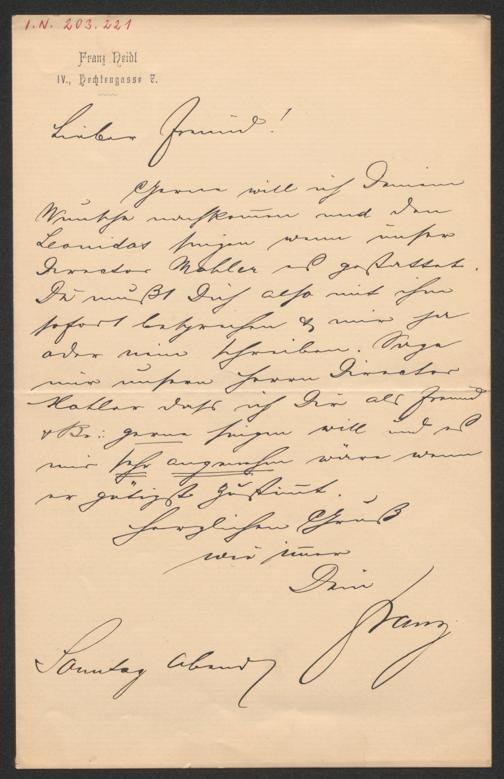 I.N. 203.221
Franz Neidl
IV., Hechtengasse 7.
Lieber Freund!
Gerne will ich Deinem
Wunsche nachkommen und den
Leonidas singen wenn unser
Director Mahler es gestattet.
Du mußt Dich also mit ihm
sofort besprechen & mir ja
oder nein schreiben. Sage
nur unserm Herrn Director
Mahler daß ich Dir als Freund
gerne singen will und es
mir sehr angenehm wäre wenn
er gütigst zustimt.
Herzlichen Gruß
wie immer
Dein
Franz
Sonntag Abend